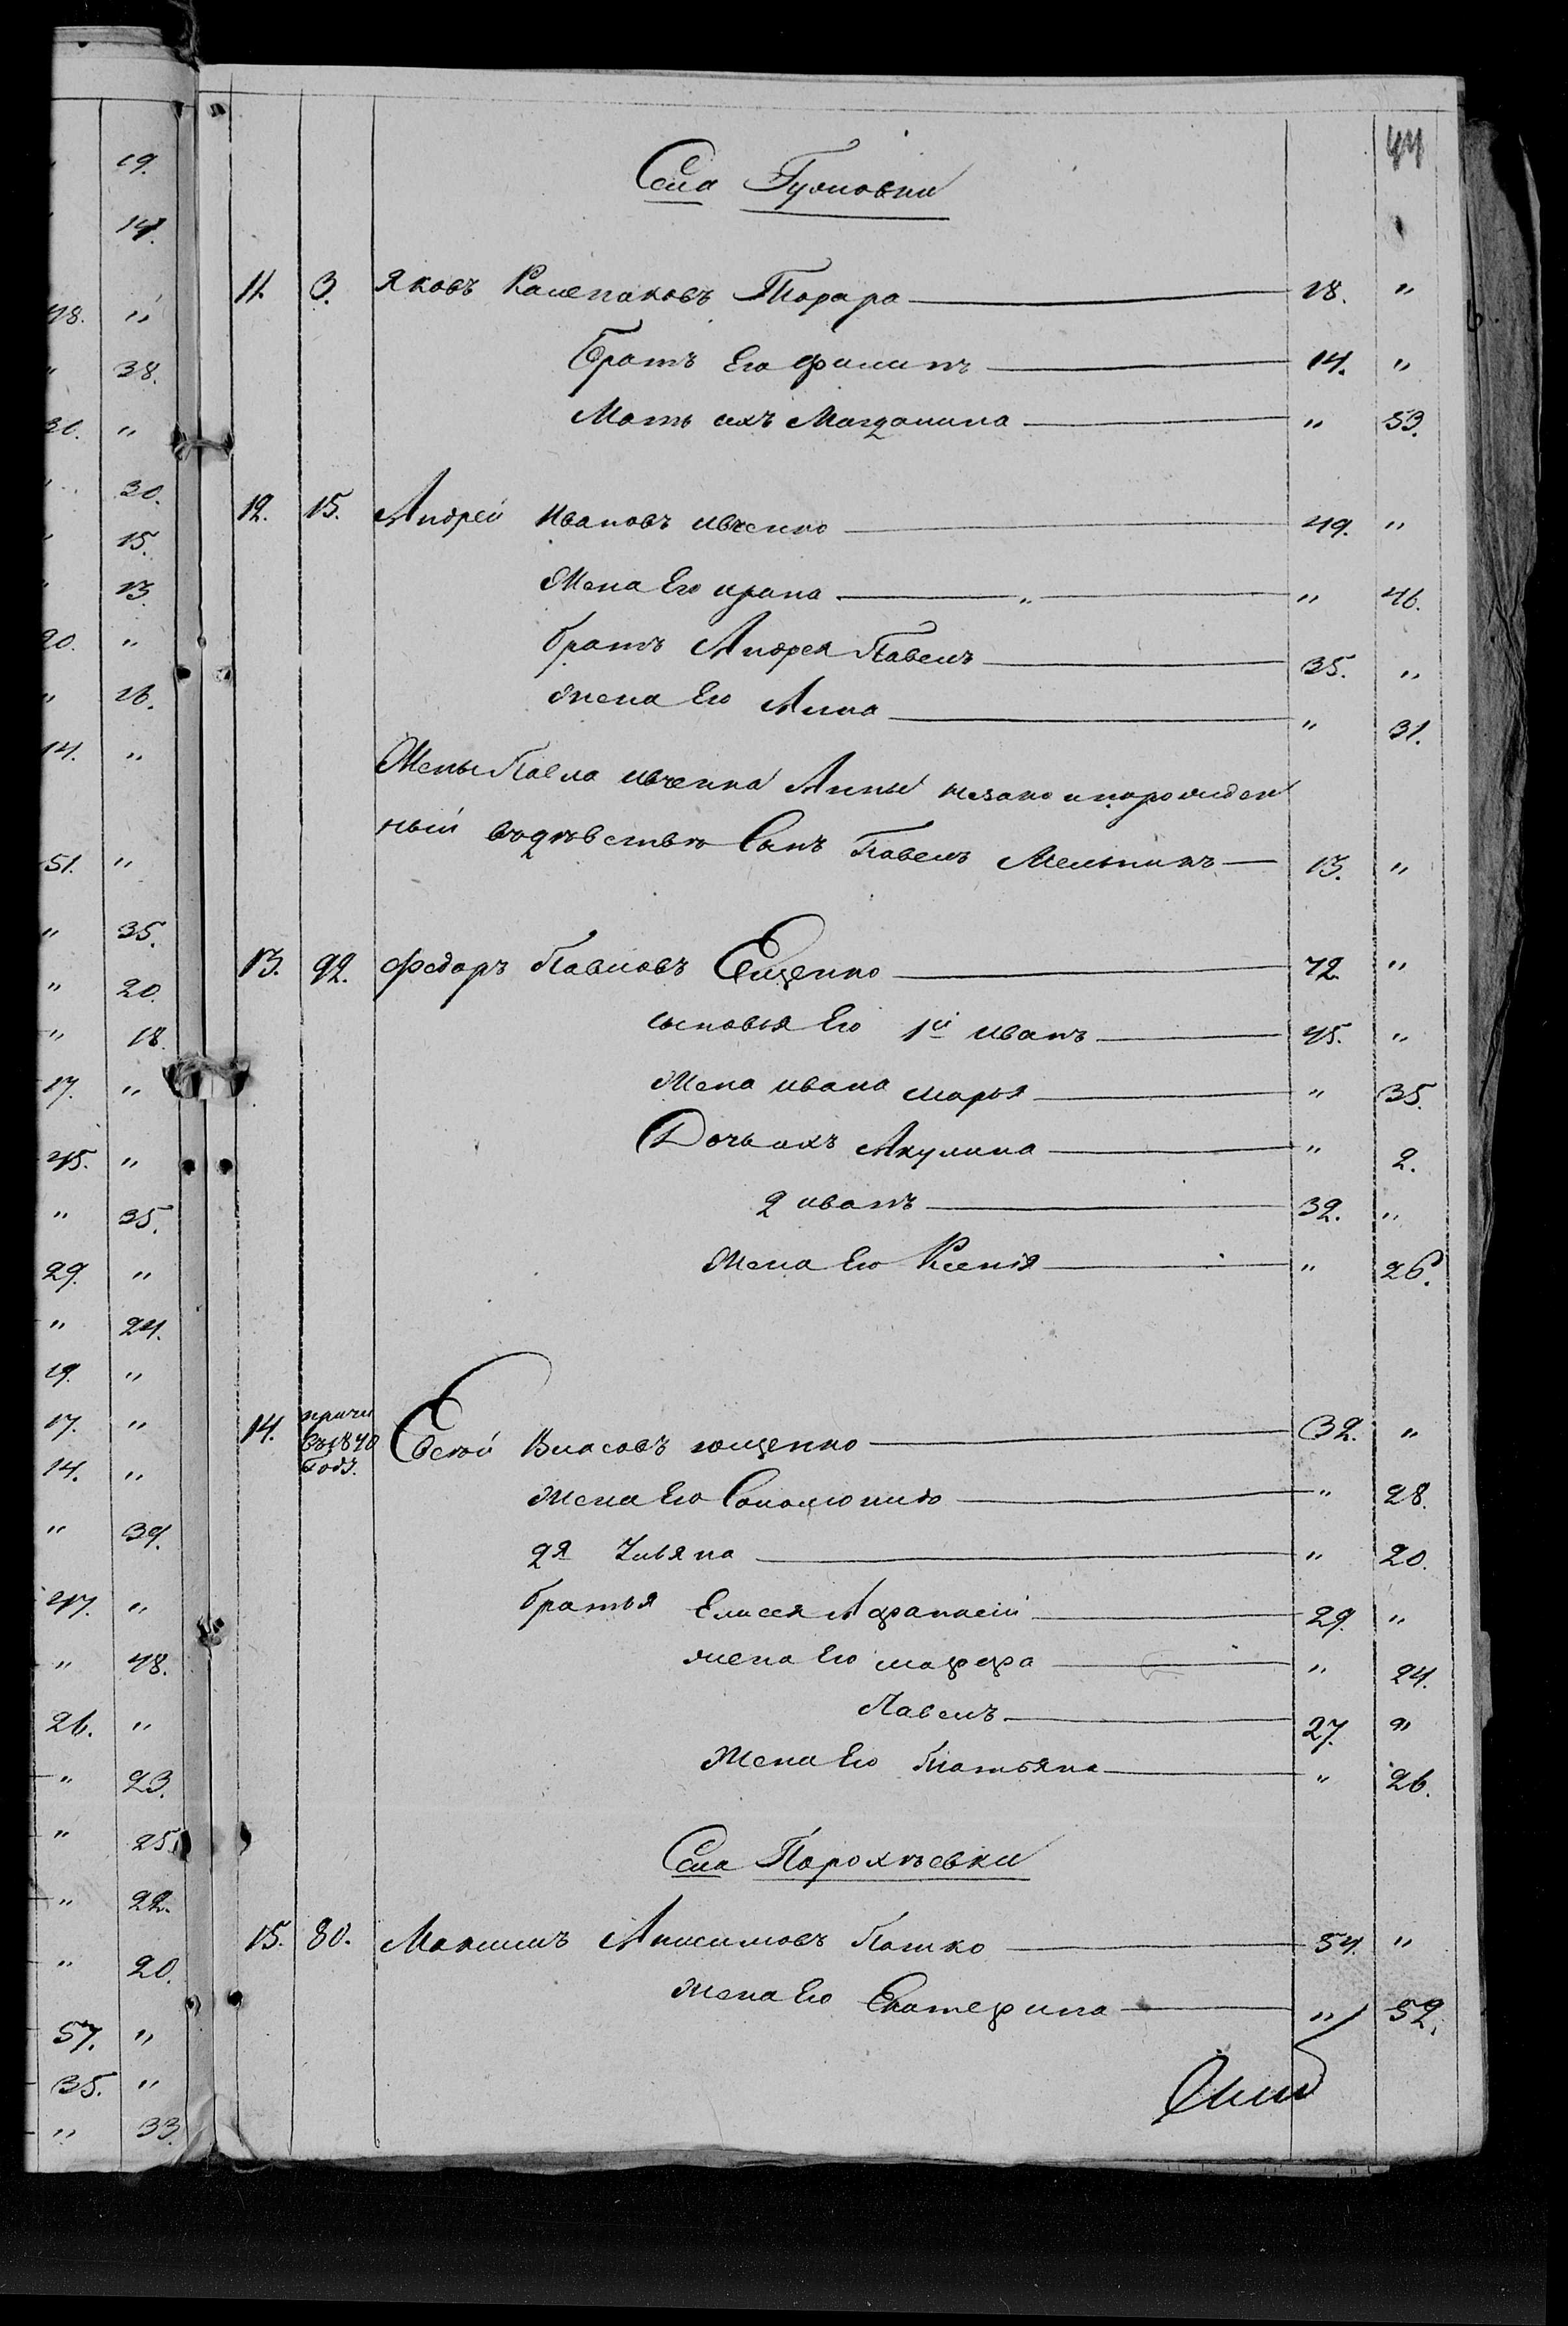 44
Села Гужовки
11. 3. Яковъ Калениковъ Шарара 18. "
Братъ Его Филипъ 14. "
Мать ихъ Магдалина " 53.
12. 15. Андрей Ивановъ Ивченко 49. "
Жена Его Ирина " 46.
братъ Андрея Павелъ 35. "
жена Его Анна " 31.
Жены Павла Ивченка Анны незаконнорожден
ный въ девстве Сынъ Павелъ Мельникъ 13. "
13. 92. Федоръ Павловъ Ещенко 72. "
сыновья Его 1й Иванъ 45. "
Жена Ивана Марья " 35.
Дочь ихъ Акулина " 2.
2 Иванъ 32. "
Жена Его Ксенія " 26.
14. причи
въ 1840
годъ. Евсѣй Власовъ Ющенко 32. "
Жена Его Соломонида " 28.
2я Ульяна " 20.
братья Елисея Афанасій 29. "
жена Его Марфа " 24.
Павелъ 27. "
Жена Его Татьяна " 26.
Села Парафѣевки
15. 80. Максимъ Анисимовъ Пашко 54. "
Жена Его Екатерина " 52.
19.
14.
48. "
" 38.
30. "
" 30.
" 15.
" 13.
20. "
" 26.
14. "
51. "
" 35.
" 20.
" 18.
17. "
45. "
" 35.
29. "
" 24.
19. "
17. "
14. "
" 39.
47. "
" 48.
26. "
" 23.
" 25.
" 22.
" 20.
57. "
35. "
" 33.